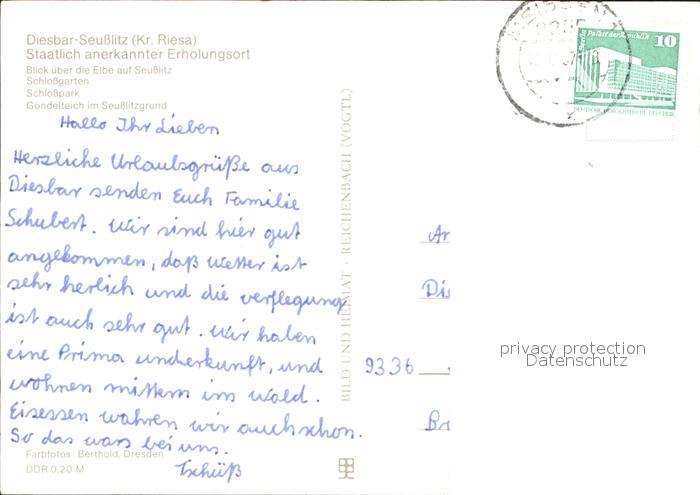 Diesbar-Seußlitz (Kr. Riesa)
Staatlich anerkannter Erholungsort
Blick über die Elbe auf Seußlitz
Schloßgarten
Schloßpark
Gondelteich im Seußlitzgrund
Hallo Ihr Lieben
Herzliche Urlaubsgrüße aus
Diesbar senden Euch Familie
Schubert. Wir sind hier gut
angekommen, daß Wetter ist
sehr herlich und die verflegung
ist auch sehr gut. Wir haben
eine Prima underkunft, und
wohnen mittem im Wald.
Eisessen wahren wir auch schon.
So das wars bei uns.
Tschüß
Farbfotos: Berthold, Dresden
DDR 0,20 M
BILD UND HEIMAT · REICHENBACH (VOGTL)
Berlin Palast der Republik 10
DEUTSCHE DEMOKRATISCHE REPUBLIK
MEISSEN 1
An
9336
privacy protection
Datenschutz